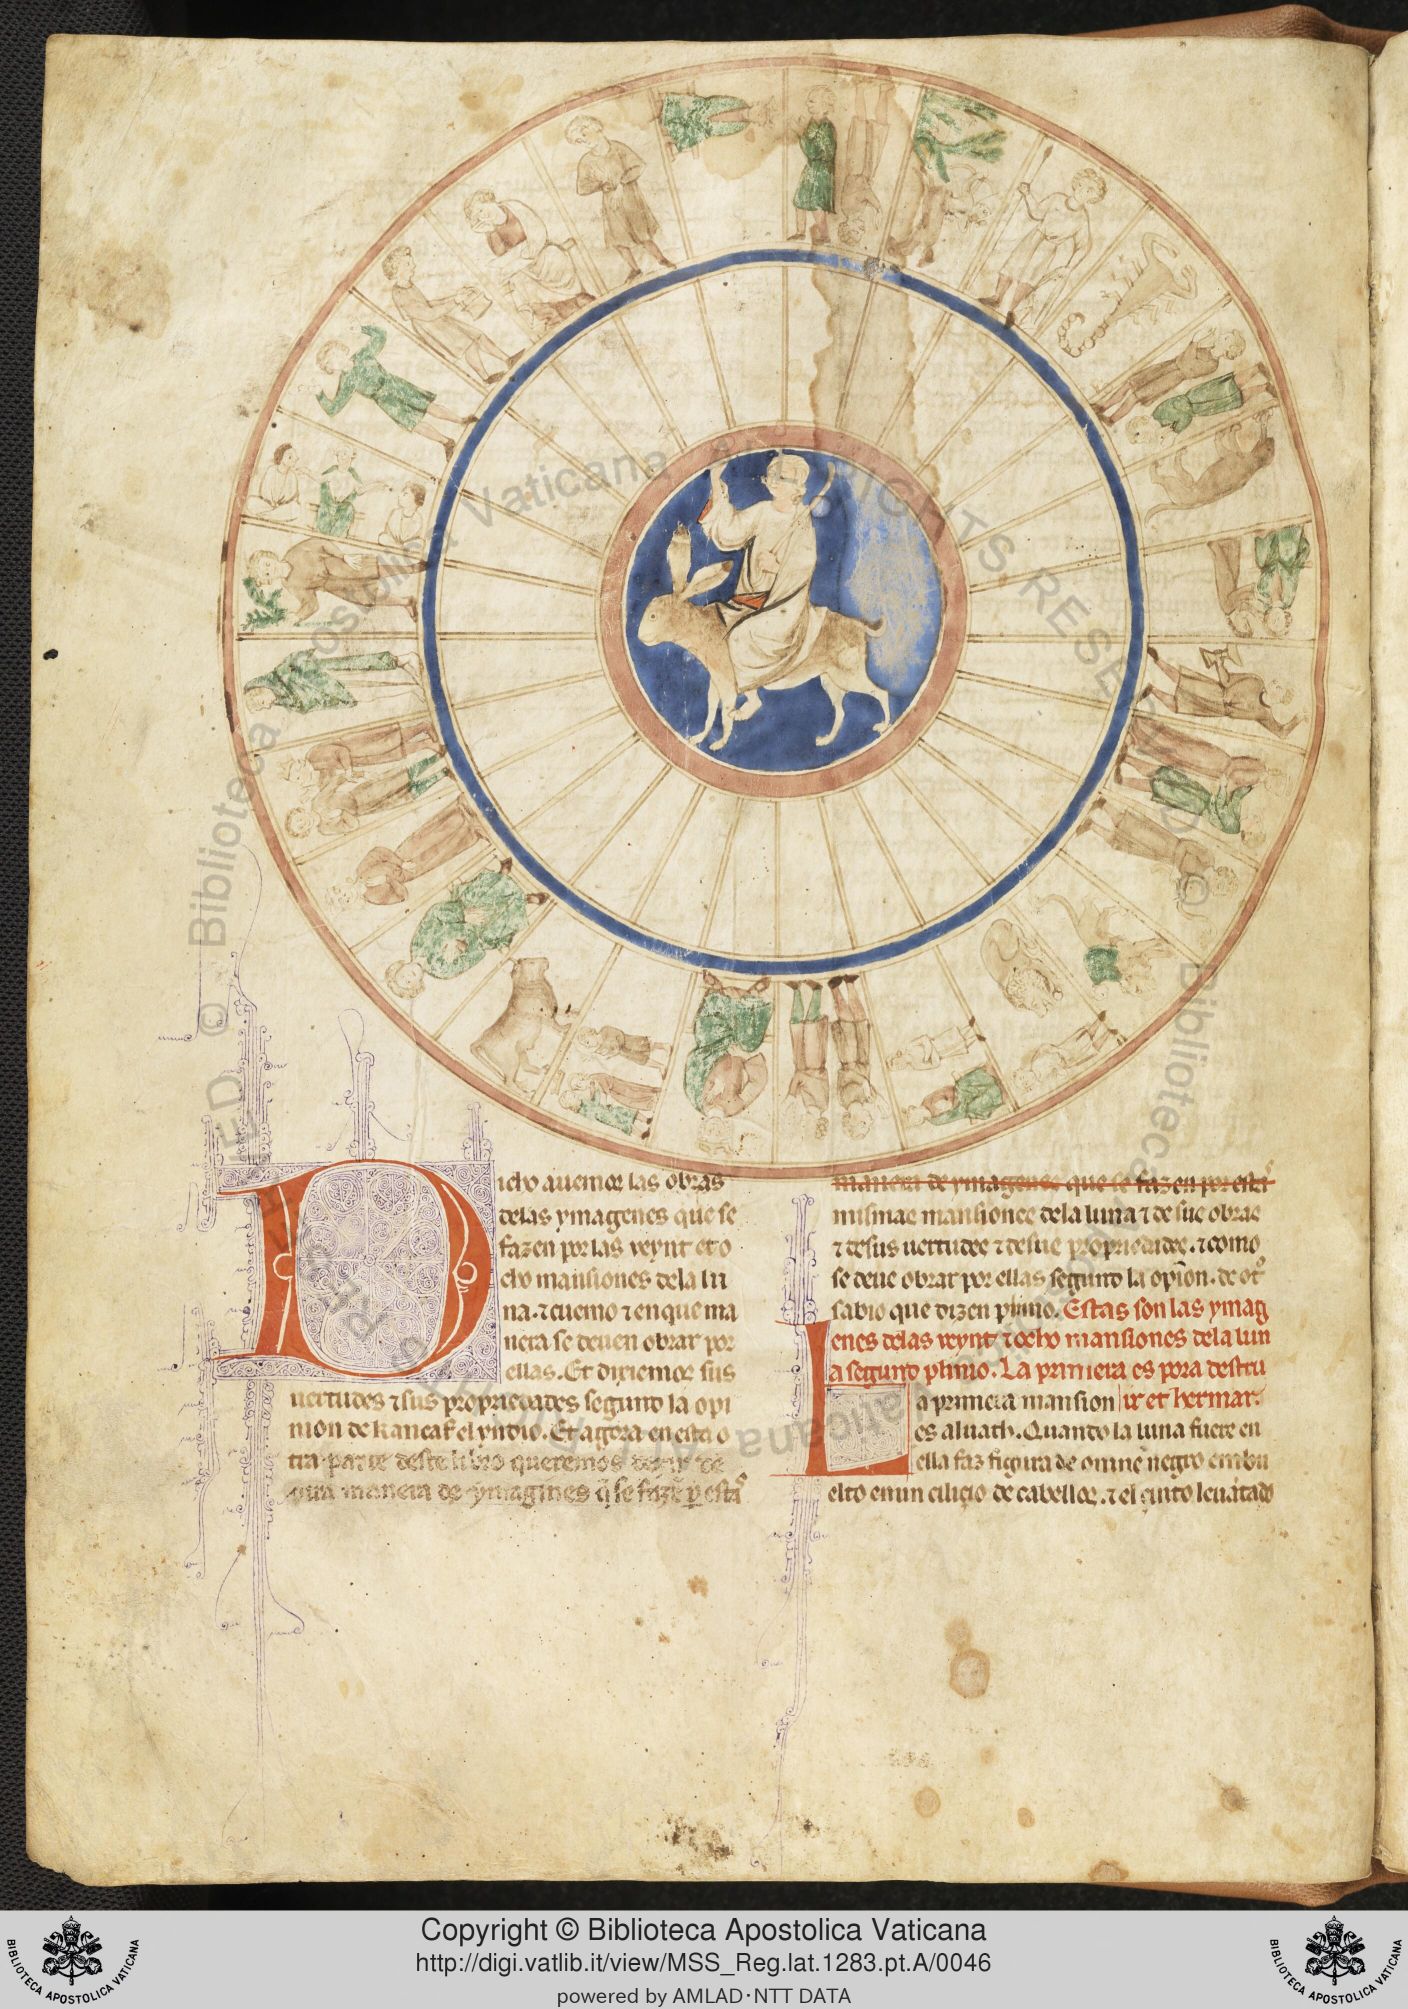 icho auemos las obras
delas ymagenes que se
fazen por las veynt et o
cho mansiones dela lu
na. ⁊ cuemo ⁊ en que ma
nera se deuen obrar por
ellas. Et dixiemos sus
uertudes ⁊ sus propriedades segunt la opi
nion de kancaf el yndio. Et agora en esta o
tra parte deste libro queremos dezir de
otra manera de ymagines q̃ se fazẽ
manera de ymagenes que se fazen por estas
mismas mansiones dela luna ⁊ de sus obras
⁊ de sus uertudes ⁊ de sus propriedades. ⁊ como
se deue obrar por ellas segunt la opion. de otͦ
sabio que dizen plinio. Estas son las ymag
enes delas veynt ⁊ ocho mansiones dela lun
a segunt plinio. La primera es pora destru
L a primera mansion ir et hermar.
es aluath. Quando la luna fuere en
ella faz figura de omne negro embu
elto en un cilicio de cabellos. ⁊ el çinto leuãtado
© Biblioteca Apostolica Vaticana ALL RIGHTS RESERVED
Copyright © Biblioteca Apostolica Vaticana
http://digi.vatlib.it/view/MSS_Reg.lat.1283.pt.A/0046
powered by AMLAD·NTT DATA
BIBLIOTECA APOSTOLICA VATICANA
BIBLIOTECA APOSTOLICA VATICANA